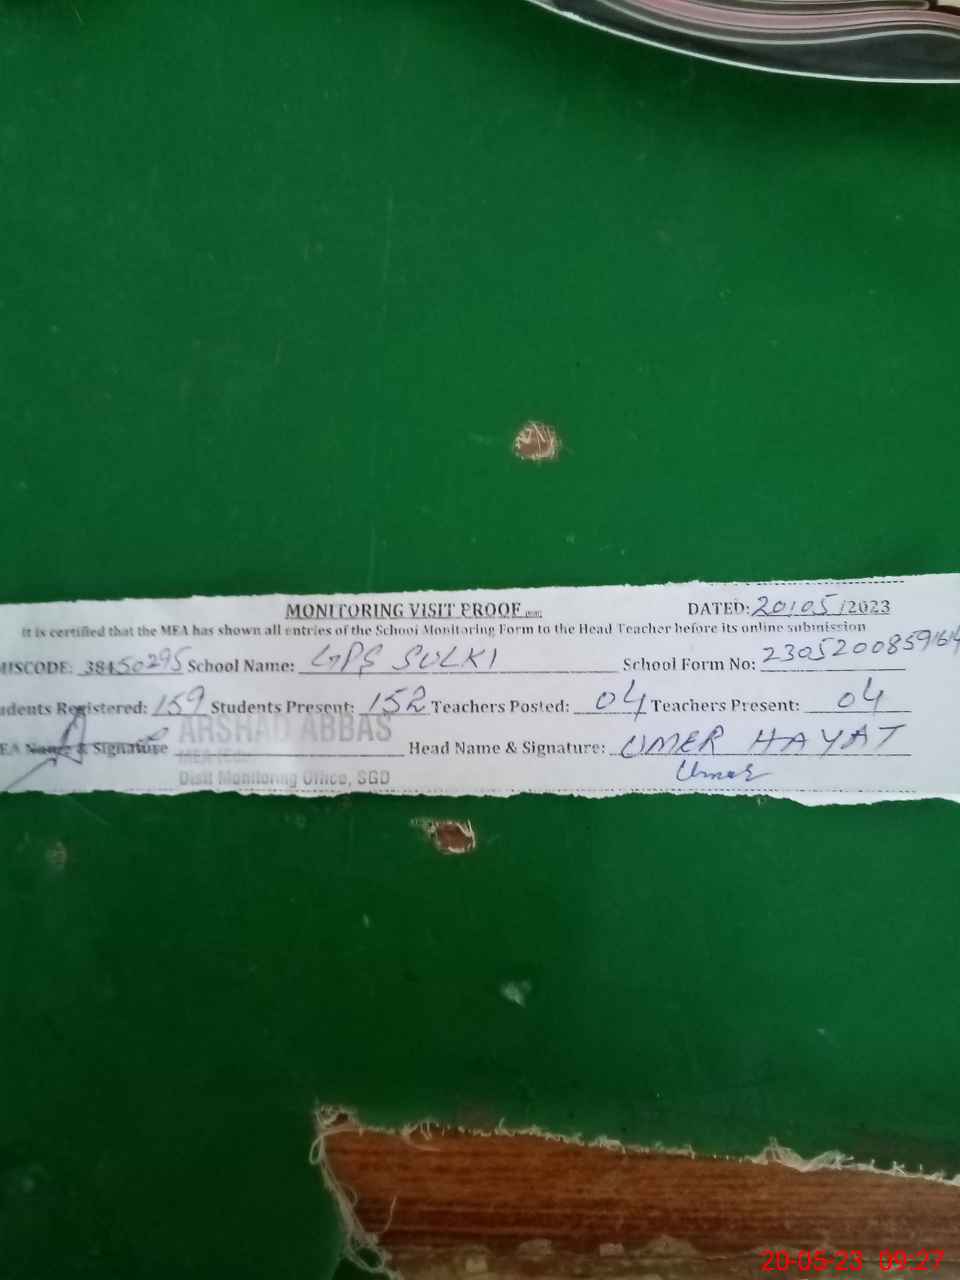 MONITORING VISIT PROOF DATED: 20/05/2023
It is certified that the MEA has shown all entries of the School Monitoring Form to the Head Teacher before its online submission
MISCODE: 38450295 School Name: GPS SULKI School Form No: 2305200859164
udents Registered: 159 Students Present: 152 Teachers Posted: 04 Teachers Present: 04
ARSHAD ABBAS
EA Name & Signature Head Name & Signature: UMER HAYAT
Umer
Distt Monitoring Office, SGD
20-05-23 09:27